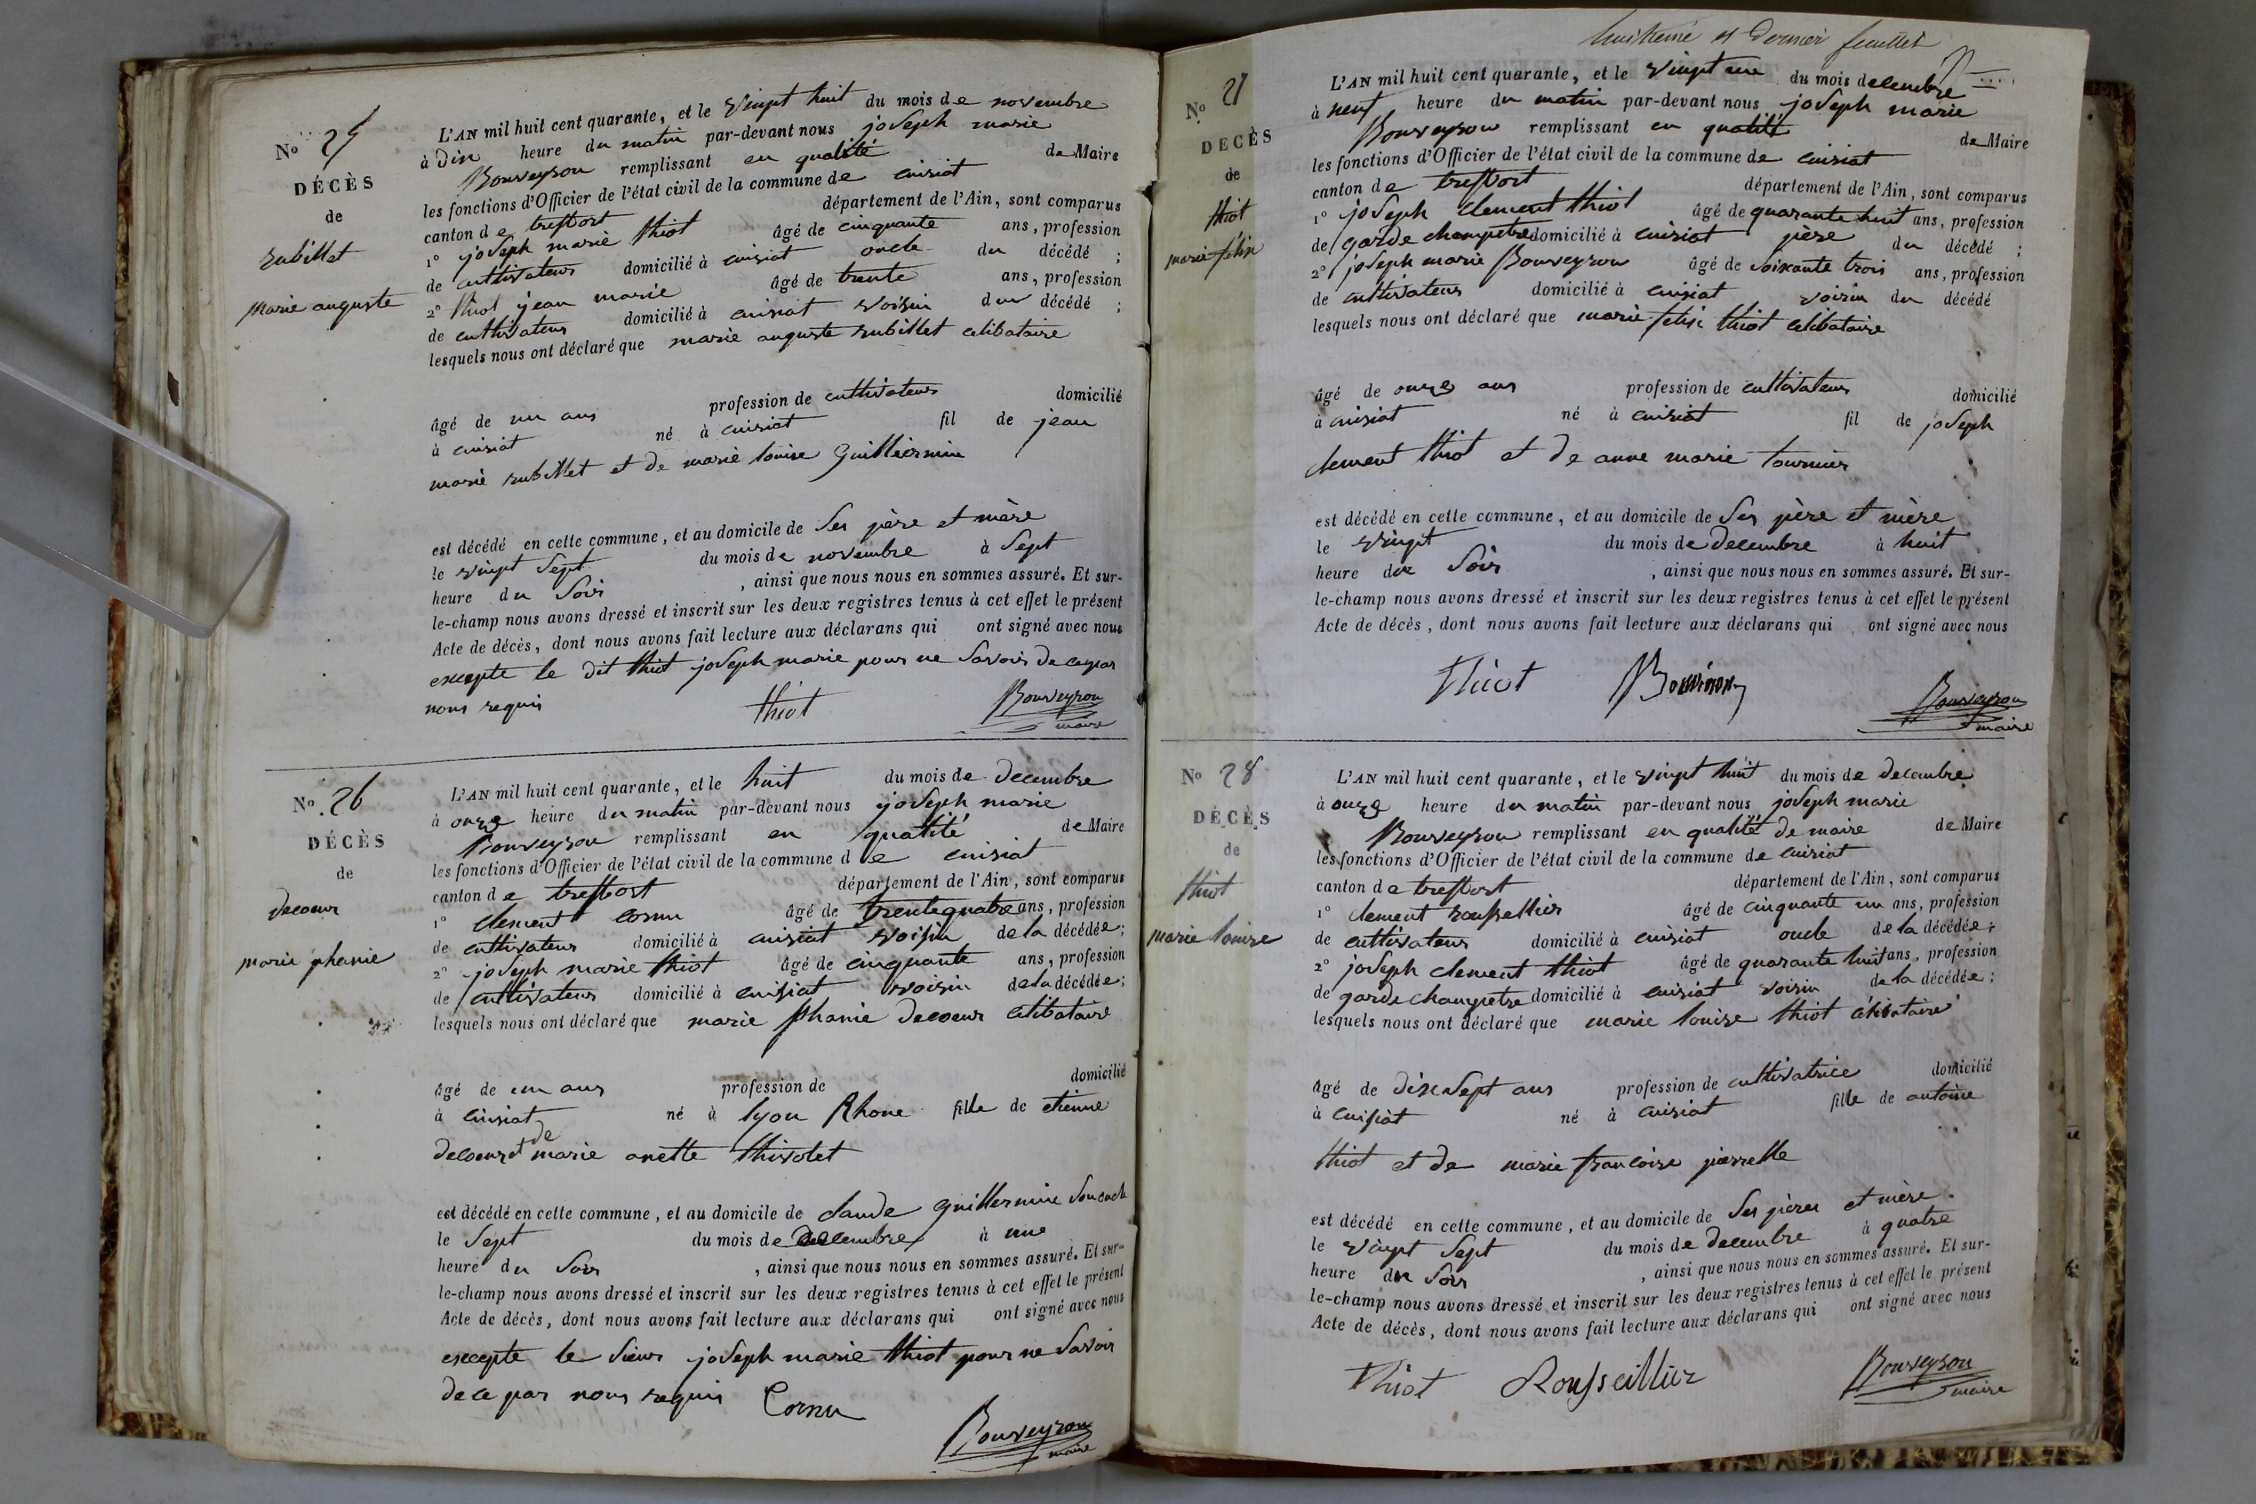 N.o 25
DÉCÈS
de
rubillet
marie auguste
L'AN mil huit cent quarante, et le vingt huit du mois de novembre
à dix heure du matin par-devant nous joseph marie
Bouveyron remplissant en qualité de Maire
les fonctions d'Officier de l'état civil de la commune de cuisiat
canton de treffort département de l'Ain, sont comparus
1° joseph marie thiot âgé de cinquante ans, profession
de cultivateur domicilié à cuisiat oncle du décédé ;
2° thiot jean marie âgé de trente ans, profession
de cultivateur domicilié à cuisiat voisin du décédé ;
lesquels nous ont déclaré que marie auguste rubillet celibataire
âgé de un ans profession de cultivateur domicilié
à cuisiat né à cuisiat fil de jean
marie rubillet et de marie louise Guilliermin
est décédé en cette commune, et au domicile de ses père et mère
le vingt sept du mois de novembre à sept
heure du soir , ainsi que nous nous en sommes assuré. Et sur-
le-champ nous avons dressé et inscrit sur les deux registres tenus à cet effet le présent
Acte de décès, dont nous avons fait lecture aux déclarans qui ont signé avec nous
excepte le dit thiot joseph marie pour ne savoir de ce par
nous requis thiot Bouveyron
maire
N.o 26
DÉCÈS
de
decoeur
marie phanie
L'AN mil huit cent quarante, et le huit du mois de decembre
à onze heure du matin par-devant nous joseph marie
Bouveyron remplissant en qualité de Maire
les fonctions d'Officier de l'état civil de la commune de cuisiat
canton de treffort département de l'Ain, sont comparus
1° clement cornu âgé de trente quatre ans, profession
de cultivateur domicilié à cuisiat voisin de la décédée;
2° joseph marie thiot âgé de cinquante ans, profession
de cultivateur domicilié à cuisiat voisin de la décédée;
lesquels nous ont déclaré que marie phanie decoeur celibataire
âgé de un ans profession de domicilié
à cuisiat né à lyon Rhone fille de etienne
decoeur et de marie anette thivolet
est décédé en cette commune, et au domicile de claude guillermine son oncle
le sept du mois de decembre à une
heure du soir , ainsi que nous nous en sommes assuré. Et sur-
le-champ nous avons dressé et inscrit sur les deux registres tenus à cet effet le présent
Acte de décès, dont nous avons fait lecture aux déclarans qui ont signé avec nous
excepte le sieur joseph marie thiot pour ne savoir
de ce par nous requis Cornu
Bouveyron
maire
huitieme et dernier feuillet
N.o 27
DÉCÈS
de
thiot
marie félix
L'AN mil huit cent quarante, et le vingt un du mois decembre
à neuf heure du matin par-devant nous joseph marie
Bouveyron remplissant en qualité de Maire
les fonctions d'Officier de l'état civil de la commune de cuisiat
canton de treffort département de l'Ain, sont comparus
1° joseph clement thiot âgé de quarante huit ans, profession
de garde champetre domicilié à cuisiat père du décédé ;
2° joseph marie Bouveyron âgé de soixante trois ans, profession
de cultivateur domicilié à cuisiat voisin du décédé
lesquels nous ont déclaré que marie felix thiot celibataire
âgé de onze ans profession de cultivateur domicilié
à cuisiat né à cuisiat fil de joseph
clement thiot et de anne marie tournier
est décédé en cette commune, et au domicile de ses père et mère
le vingt du mois de decembre à huit
heure du soir , ainsi que nous nous en sommes assuré. Et sur-
le-champ nous avons dressé et inscrit sur les deux registres tenus à cet effet le présent
Acte de décès, dont nous avons fait lecture aux déclarans qui ont signé avec nous
Thiot Bouveyron
maire
N.o 28
DÉCÈS
de
thiot
marie louise
L'AN mil huit cent quarante, et le vingt huit du mois de decembre
à onze heure du matin par-devant nous joseph marie
Bouveyron remplissant en qualité de maire de Maire
les fonctions d'Officier de l'état civil de la commune de cuisiat
canton de treffort département de l'Ain, sont comparus
1° clement roussellier âgé de cinquante un ans, profession
de cultivateur domicilié à cuisiat oncle de la décédée;
2° joseph clement thiot âgé de quarante huit ans, profession
de garde champetre domicilié à cuisiat voisin de la décédée;
lesquels nous ont déclaré que marie louise thiot célibataire
âgé de dix sept ans profession de cultivatrice domicilié
à cuisiat né à cuisiat fille de antoine
thiot et de marie francoise pierrelle
est décédé en cette commune, et au domicile de ses pères et mère
le vingt sept du mois de decembre à quatre
heure du soir , ainsi que nous nous en sommes assuré. Et sur-
le-champ nous avons dressé et inscrit sur les deux registres tenus à cet effet le présent
Acte de décès, dont nous avons fait lecture aux déclarans qui ont signé avec nous
Thiot Rousseillier Bouveyron
maire